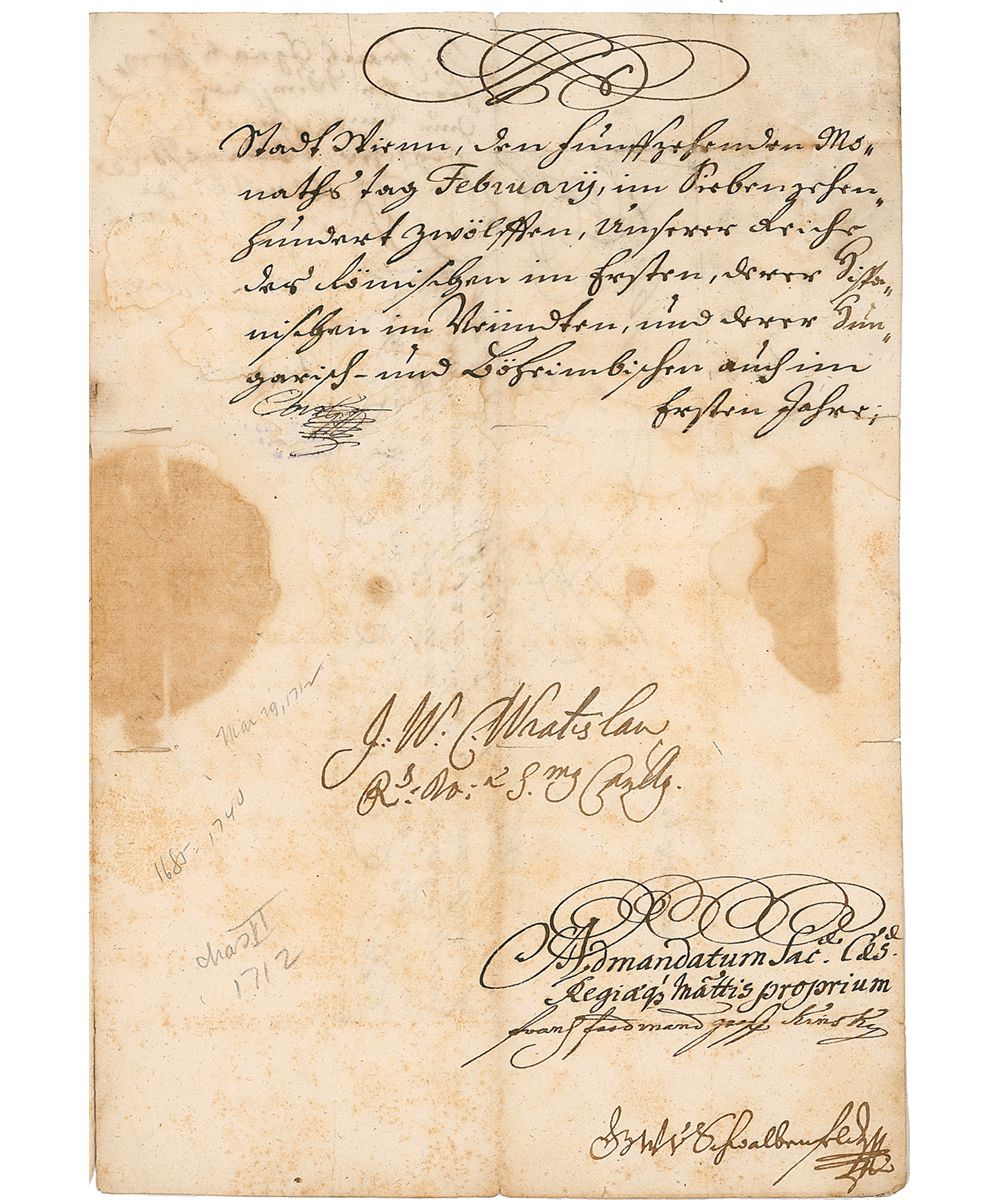 Stadt Wienn, den funffzehenden Mo„
naths tag February, im Siebenzehen„
hundert zwölfften, Unserer Reiche
des Römischen im Ersten, derer Hispa„
nischen im Neündten, und derer Hun„
garisch- und Böheimbischen auch im
Ersten Jahre;
Carl
Mar 29, 1712
J. W. C. Wratislaw
Rs: Bo: S. mg Canllg.
1685-1740
Chas VI
1712
Ad mandatum Sac. Cæs.
Regiæq; Mattis proprium
Frantz Ferdinand graff Kinsky
v Schwalbenfeldt